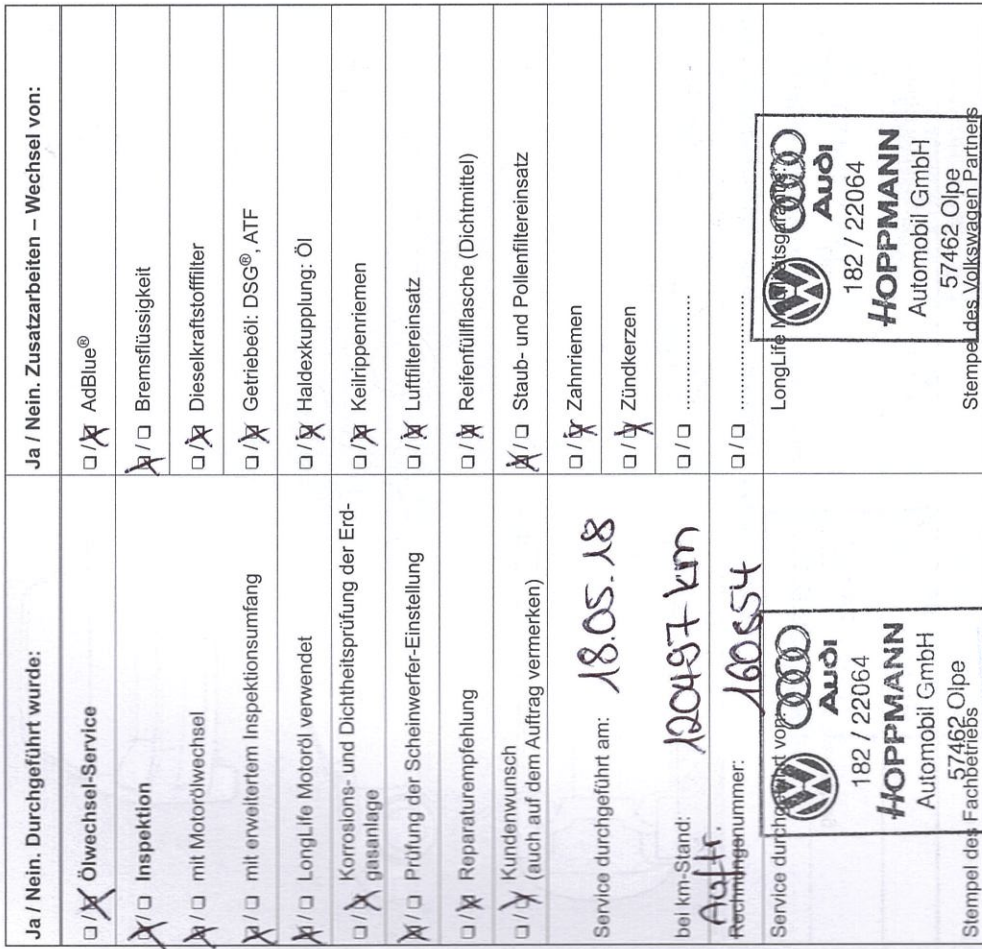 Ja / Nein. Durchgeführt wurde:
□/□ Ölwechsel-Service
□/□ Inspektion
□/□ mit Motorölwechsel
□/□ mit erweitertem Inspektionsumfang
□/□ LongLife Motoröl verwendet
□/□ Korrosions- und Dichtheitsprüfung der Erd-
gasanlage
□/□ Prüfung der Scheinwerfer-Einstellung
□/□ Reparaturempfehlung
□/□ Kundenwunsch
(auch auf dem Auftrag vermerken)
Service durchgeführt am: 18.05.18
bei km-Stand: 120497 km
Auftr.
Rechnungsnummer: 160554
Service durchgeführt vom:
Audi
182 / 22064
HOPPMANN
Automobil GmbH
57462 Olpe
Stempel des Fachbetriebs
Ja / Nein. Zusatzarbeiten – Wechsel von:
□/□ AdBlue®
□/□ Bremsflüssigkeit
□/□ Dieselkraftstofffilter
□/□ Getriebeöl: DSG®, ATF
□/□ Haldexkupplung: Öl
□/□ Keilrippenriemen
□/□ Luftfiltereinsatz
□/□ Reifenfüllflasche (Dichtmittel)
□/□ Staub- und Pollenfiltereinsatz
□/□ Zahnriemen
□/□ Zündkerzen
□/□ ........................
□/□ ........................
LongLife Mobilitätsgarantie:
Audi
182 / 22064
HOPPMANN
Automobil GmbH
57462 Olpe
Stempel des Volkswagen Partners